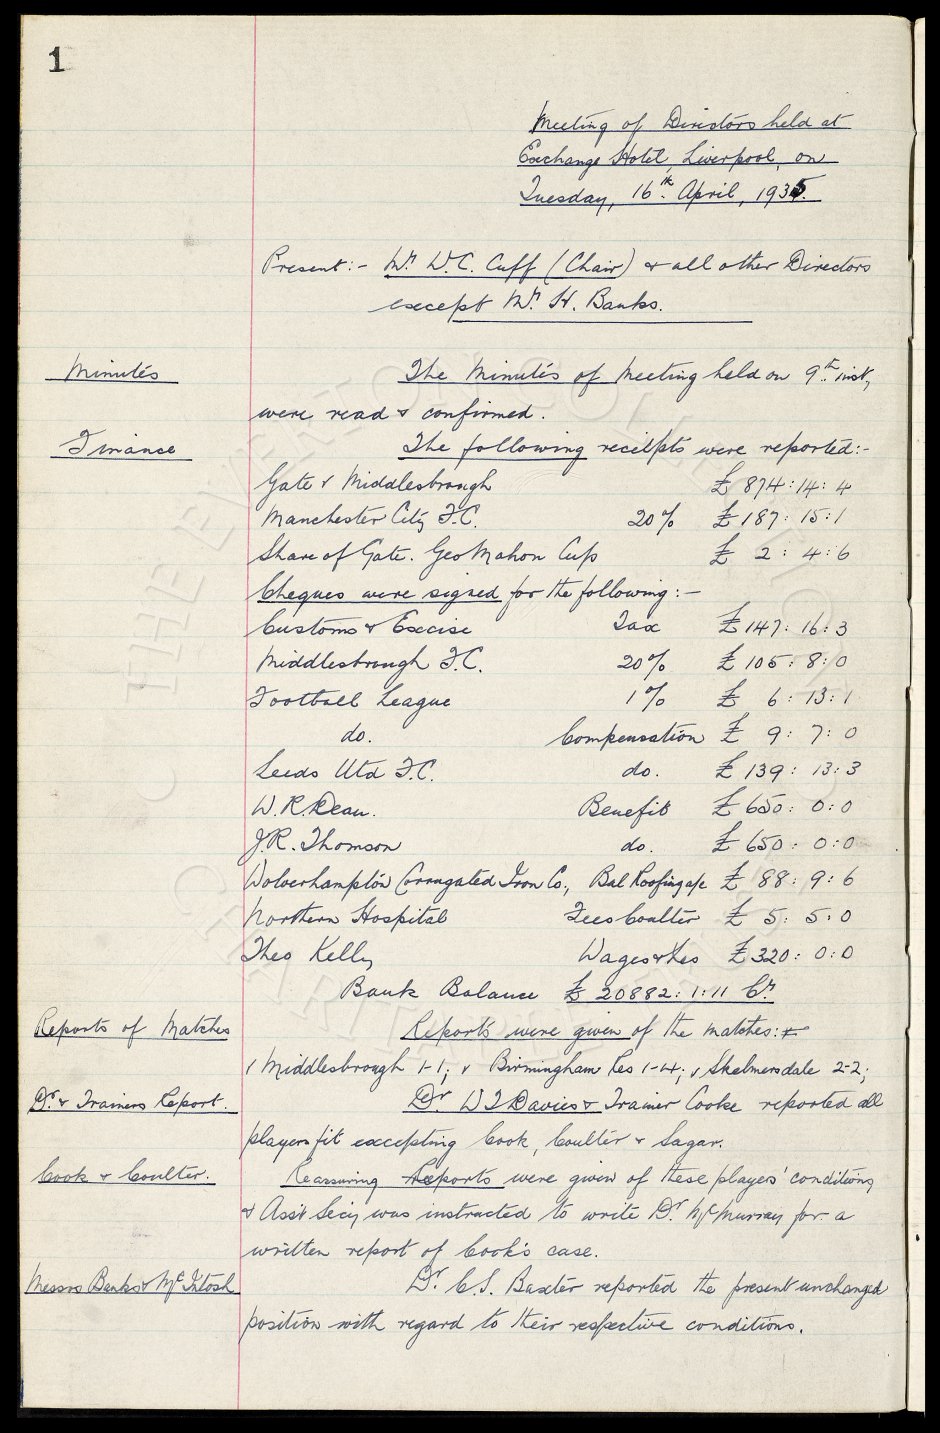 1
Meeting of Directors held at
Exchange Hotel, Liverpool, on
Tuesday, 16th April, 1935.
Present:- Mr W.C. Cuff (Chair) & all other Directors
except Mr. H. Banks.
Minutes
The Minutes of Meeting held on 9th inst,
were read & confirmed.
Finance
The following receipts were reported:-
Gate v Middlesbrough £ 874:14:4
Manchester City F.C. 20% £ 187:15:1
Share of Gate. Geo Mahon Cup £ 2:4:6
Cheques were signed for the following:-
Customs & Excise Tax £ 147:16:3
Middlesbrough F.C. 20% £ 105:8:0
Football League 1% £ 6:13:1
do. Compensation £ 9:7:0
Leeds Utd F.C. do. £ 139:13:3
W.R. Dean. Benefit £ 650:0:0
J.R. Thomson do. £ 650:0:0
Wolverhampton Corrugated Iron Co., Bal Roofing a/c £ 88:9:6
Northern Hospital Fees Coulter £ 5:5:0
Theo Kelly Wages &c £ 320:0:0
Bank Balance £ 20882:1:11 Cr
Reports of Matches
Reports were given of the matches:-
v Middlesbrough 1-1; v Birmingham Res 1-4; v Skelmersdale 2-2;
Dr. & Trainers Report.
Dr W J Davies & Trainer Cooke reported all
players fit excepting Cook, Coulter & Sagar.
Cook & Coulter.
Reassuring Reports were given of these players' conditions
& Asst Secy was instructed to write Dr. McMurray for a
written report of Cook's case.
Messrs Banks & McIntosh
Dr. C.S. Baxter reported the present unchanged
position with regard to their respective conditions.
© THE EVERTON COLLECTION
CHARITABLE TRUST